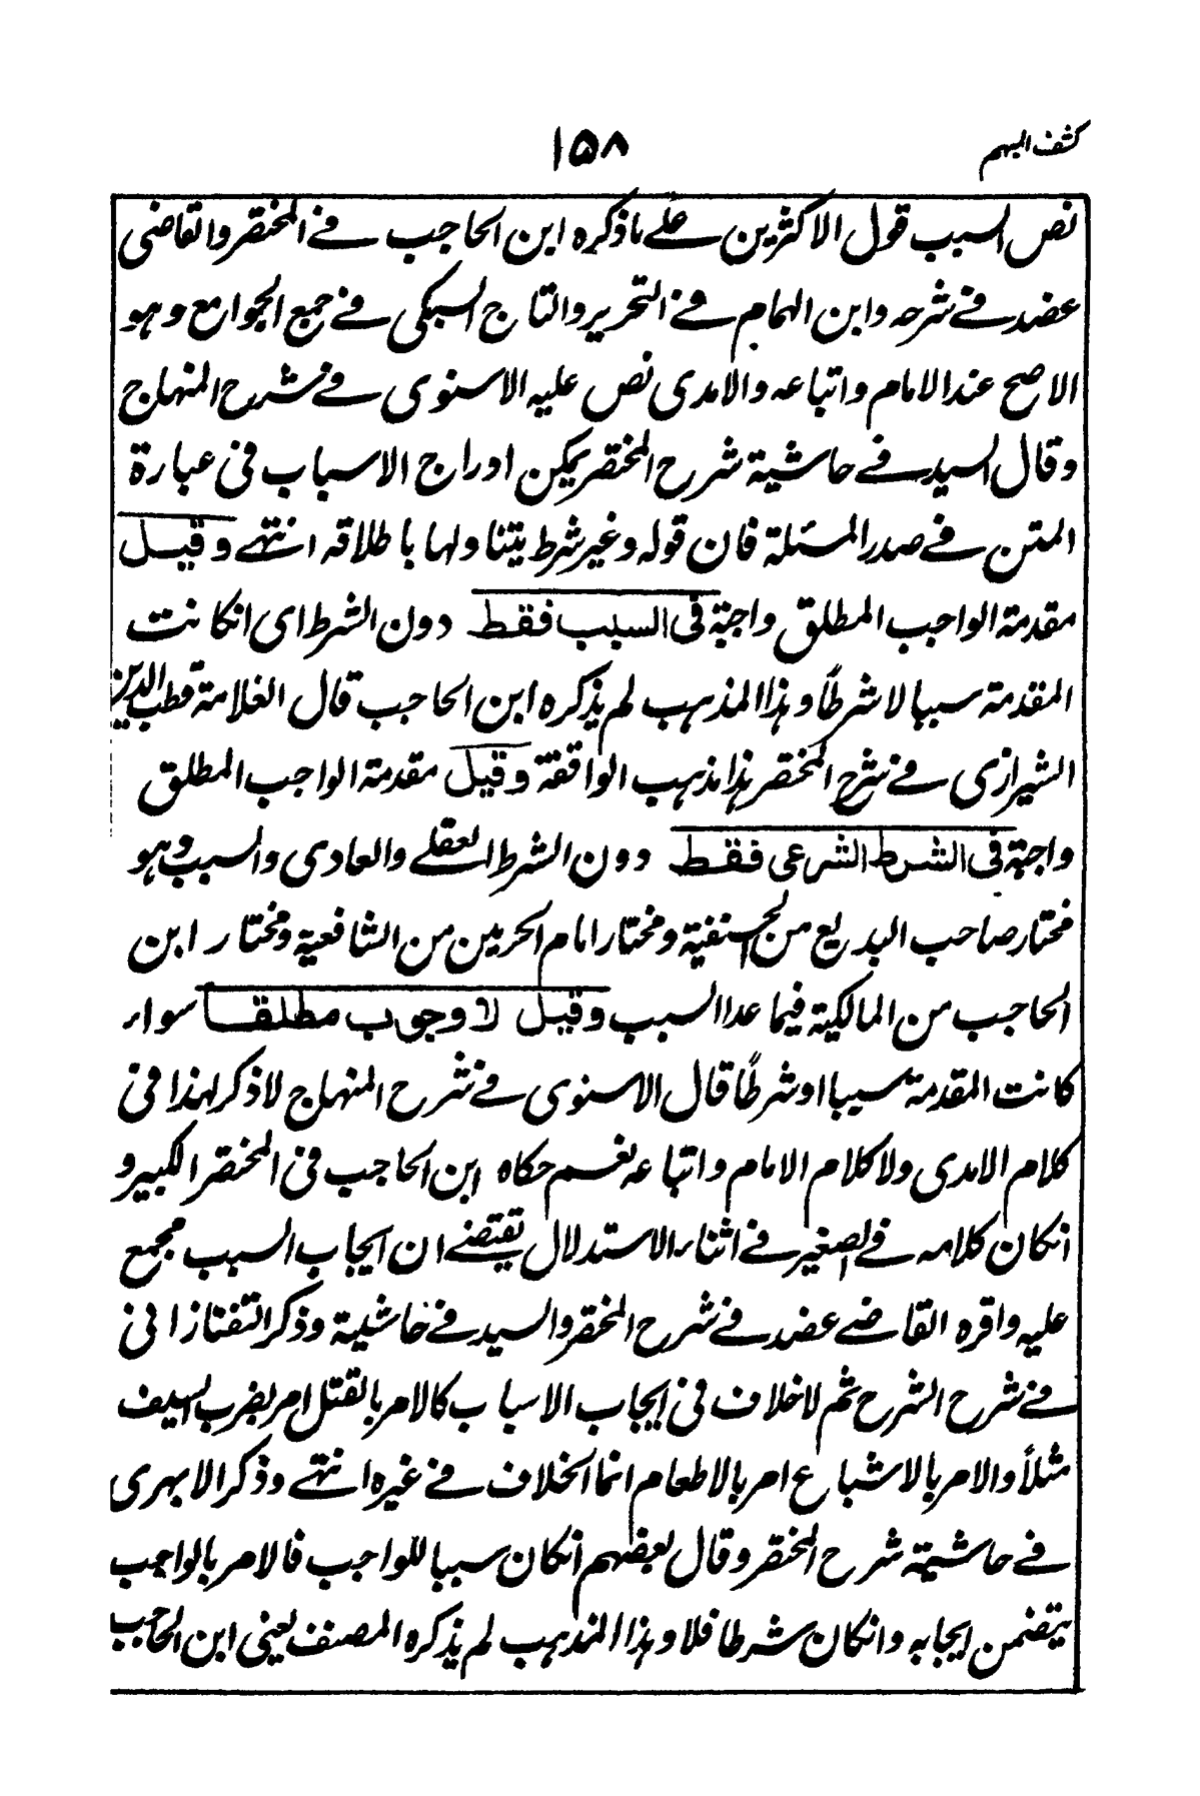 كشف المبهم
١٥٨
نص السبب قول الاكثرين على ماذكره ابن الحاجب في المختصر والقاضى
عضد في شرحه وابن الهمام في التحرير والتاج السبكى في جمع الجوامع وهو
الاصح عند الامام واتباعه والامدى نص عليه الاسنوى في شرح المنهاج
وقال السيد في حاشية شرح المختصر يمكن ادراج الاسباب فى عبارة
المتن في صدر المسئلة فان قوله وغير شرط يتناولها باطلاقه انتهى وقيل
مقدمة الواجب المطلق واجبة فى السبب فقط دون الشرط اى انكانت
المقدمة سببا لا شرطاً وهذا المذهب لم يذكره ابن الحاجب قال العلامة قطب الدين
الشيرازى في شرح المختصر هذا مذهب الواقفة وقيل مقدمة الواجب المطلق
واجبة فى الشرط الشرعى فقط دون الشرط العقلى والعادى والسبب وهو
مختار صاحب البديع من الحنفية ومختار امام الحرمين من الشافعية ومختار ابن
الحاجب من المالكية فيما عدا السبب وقيل لا وجوب مطلقا سواء
كانت المقدمة سببا او شرطاً قال الاسنوى في شرح المنهاج لا ذكر لهذا فى
كلام الامدى ولا كلام الامام واتباعه نعم حكاه ابن الحاجب فى المختصر الكبير و
انكان كلامه في الصغير في اثناء الاستدلال يقتضى ان ايجاب السبب مجمع
عليه واقره القاضى عضد في شرح المختصر والسيد في حاشية وذكر التفتازانى
في شرح الشرح ثم لا خلاف فى ايجاب الاسباب كالامر بالقتل امر بضرب السيف
مثلاً والامر بالاشباع امر بالاطعام انما الخلاف في غيره انتهى وذكر الابهرى
في حاشية شرح المختصر وقال بعضهم انكان سببا للواجب فالامر بالواجب
يتضمن ايجابه وانكان شرطا فلا وهذا المذهب لم يذكره المصنف يعنى ابن الحاجب